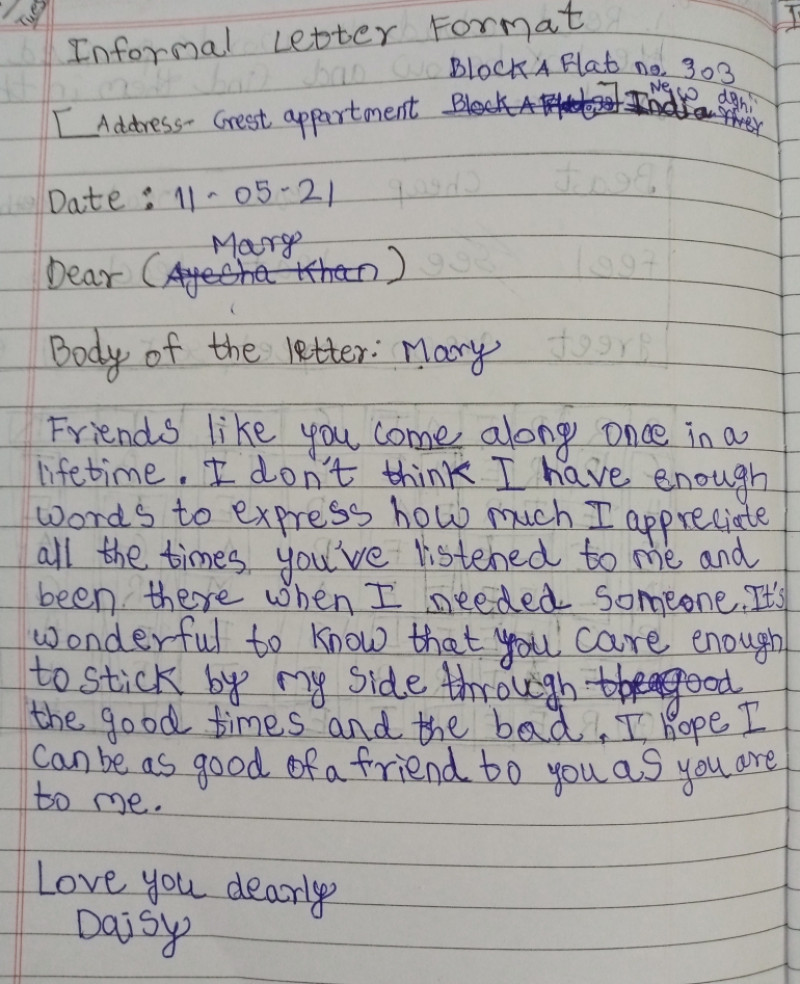 Informal Letter Format
Block A Flat no. 303
[ Address- Crest appartment Block A ] India New
Date : 11-05-21
Mary
Dear (Ayecha Khan)
Body of the letter: Mary
Friends like you come along once in a
lifetime. I don't think I have enough
words to express how much I appreciate
all the times you've listened to me and
been there when I needed someone. It's
wonderful to know that you care enough
to stick by my side through good
the good times and the bad. I hope I
can be as good of a friend to you as you are
to me.
Love you dearly
Daisy